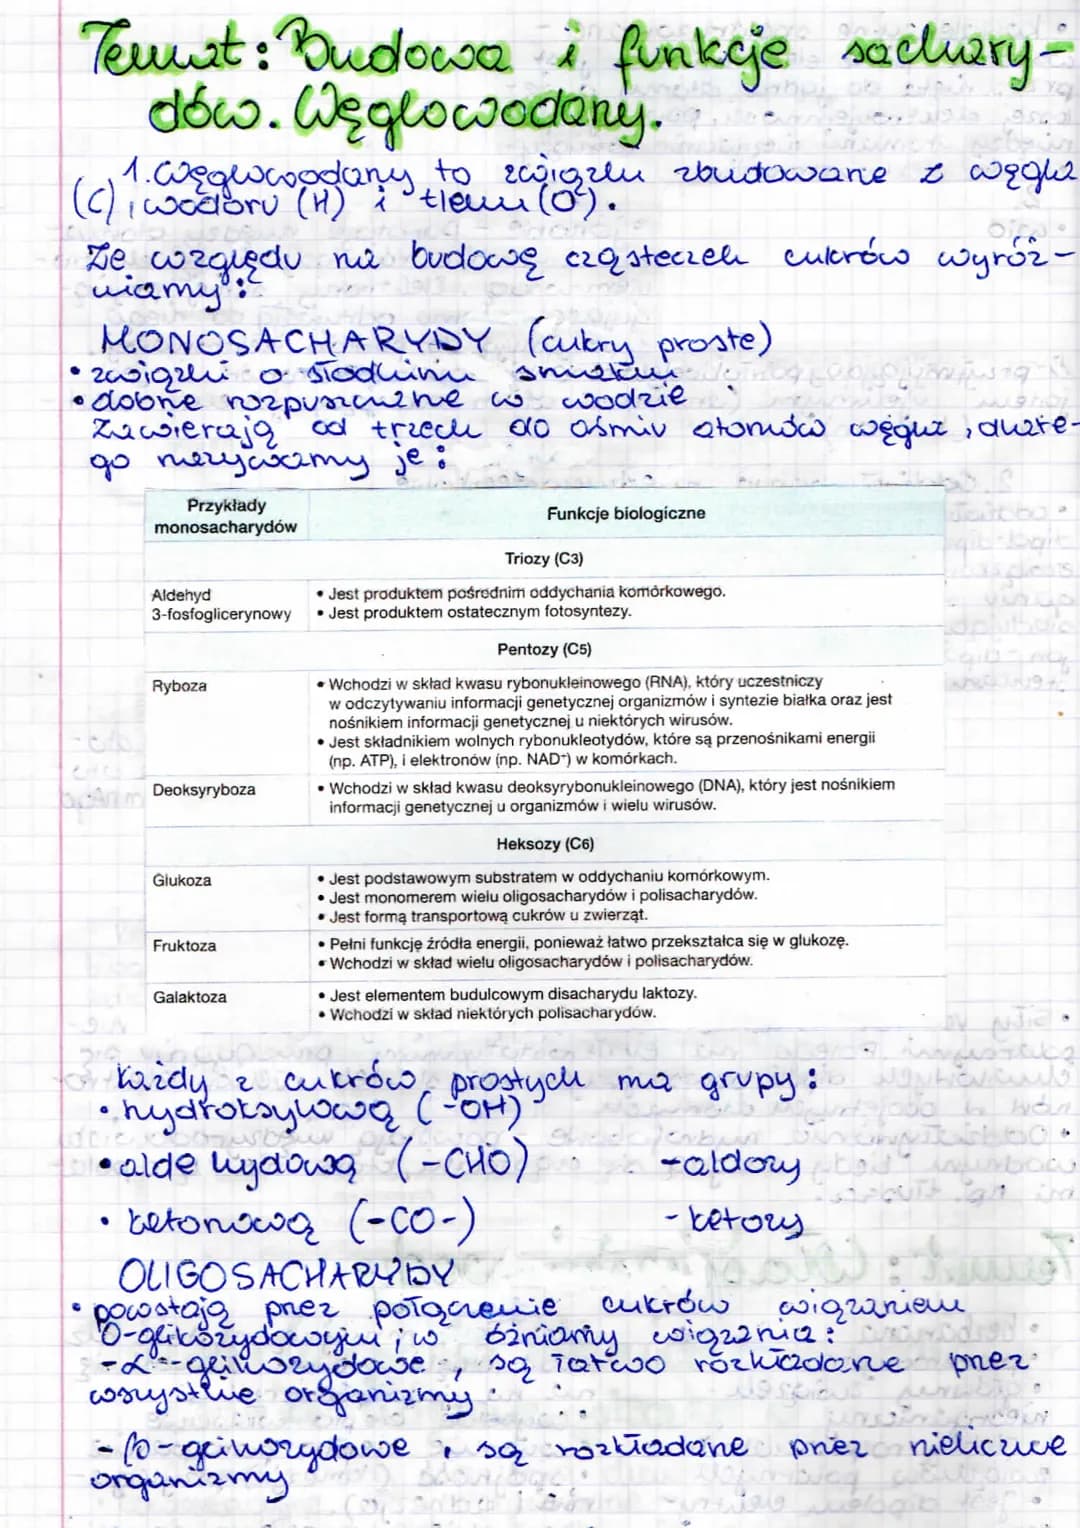 Temat: Budowa i funkcje sachary-
dów. Węglowodany.
1. Węglowodany to związku zbudowane z węgla
(C), wodoru (H) i tlenu (O).
Ze względu na budowę cząsteczek cukrów wyróż-
niamy:
MONOSACHARYDY (cukry proste)
• związki o słodkim smaku
• dobrze rozpuszczalne w wodzie
Zawierają od trzech do ośmiu atomów węgla, dlate-
go nazywamy je:
Przykłady monosacharydów | Funkcje biologiczne
Triozy (C3)
Aldehyd • Jest produktem pośrednim oddychania komórkowego.
3-fosfoglicerynowy • Jest produktem ostatecznym fotosyntezy.
Pentozy (C5)
Ryboza • Wchodzi w skład kwasu rybonukleinowego (RNA), który uczestniczy
w odczytywaniu informacji genetycznej organizmów i syntezie białka oraz jest
nośnikiem informacji genetycznej u niektórych wirusów.
• Jest składnikiem wolnych rybonukleotydów, które są przenośnikami energii
(np. ATP), i elektronów (np. NAD⁺) w komórkach.
Deoksyryboza • Wchodzi w skład kwasu deoksyrybonukleinowego (DNA), który jest nośnikiem
informacji genetycznej u organizmów i wielu wirusów.
Heksozy (C6)
Glukoza • Jest podstawowym substratem w oddychaniu komórkowym.
• Jest monomerem wielu oligosacharydów i polisacharydów.
• Jest formą transportową cukrów u zwierząt.
Fruktoza • Pełni funkcję źródła energii, ponieważ łatwo przekształca się w glukozę.
• Wchodzi w skład wielu oligosacharydów i polisacharydów.
Galaktoza • Jest elementem budulcowym disacharydu laktozy.
• Wchodzi w skład niektórych polisacharydów.
Każdy z cukrów prostych ma grupy:
• hydroksylową (-OH)
• aldehydową (-CHO) -aldozy
• ketonową (-CO-) -ketozy
OLIGOSACHARYDY
• powstają przez połączenie cukrów wiązaniem
O-glikozydowym; w óżniamy wiązania:
- α - glikozydowe, są łatwo rozkładane przez
wszystkie organizmy
- β - glikozydowe, są rozkładane przez nieliczne
organizmy